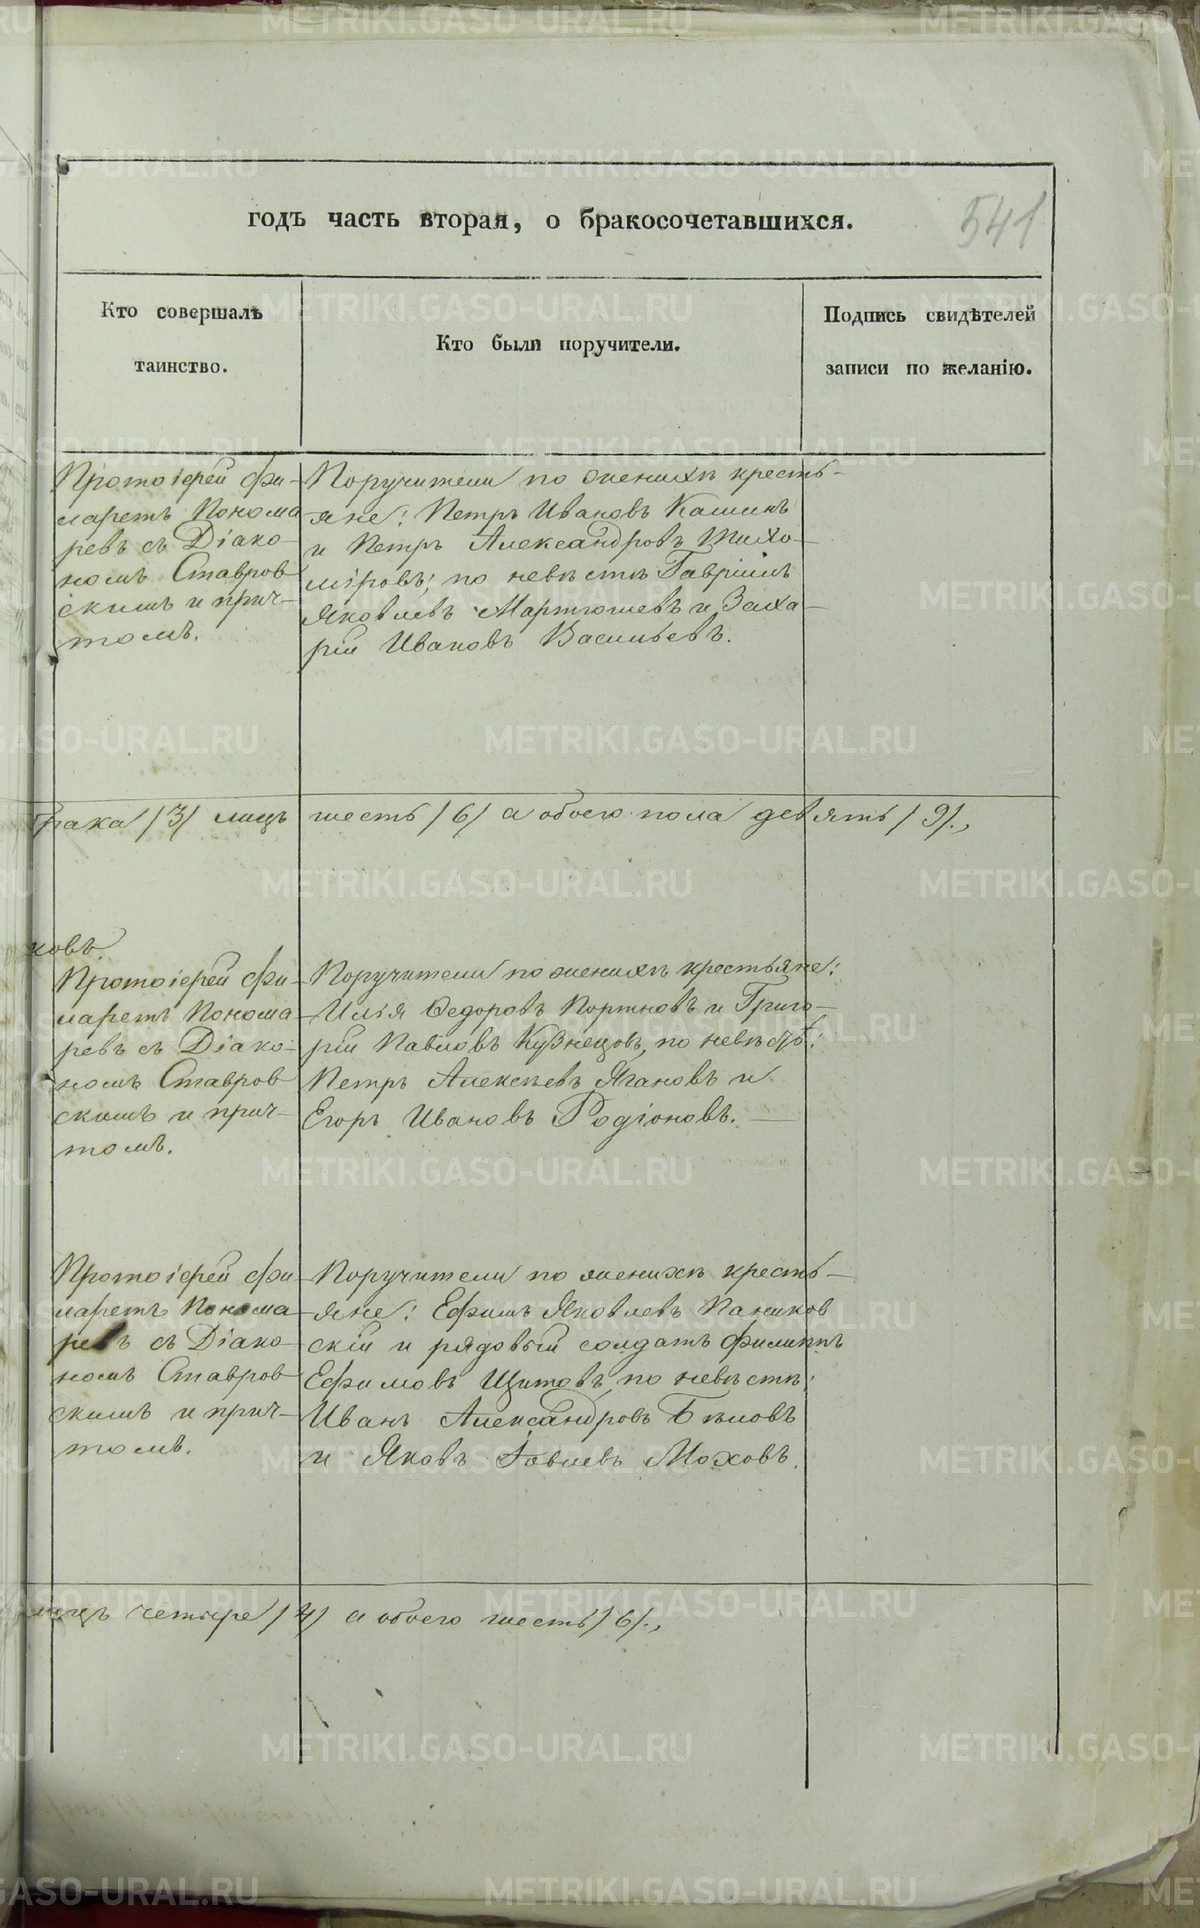 годъ часть вторая, о бракосочетавшихся.
541
Кто совершалъ
таинство.
Кто были поручители.
Подпись свидѣтелей
записи по желанію.
Протоіерей Фи-
ларетъ Понома
ревъ съ Діако-
номъ Ставров
скимъ и прич-
томъ.
Поручители по женихѣ кресть-
яне: Петръ Ивановъ Кашинъ
и Петръ Александровъ Тихо-
міровъ; по невѣстѣ Гавріилъ
Яковлевъ Мартюшевъ и Заха-
рій Ивановъ Васильевъ.
брака /3/ лицъ шесть /6/ а обоего пола девять /9/.,
ковъ.
Протоіерей Фи-
ларетъ Понома
ревъ съ Діако-
номъ Ставров
скимъ и прич-
томъ.
Поручители по женихѣ крестьяне:
Илья Ѳедоровъ Портновъ и Григо-
рій Павловъ Кузнецовъ, по невѣстѣ:
Петръ Алексѣевъ Ягановъ и
Егоръ Ивановъ Родіоновъ.
Протоіерей Фи-
ларетъ Понома
ревъ съ Діако-
номъ Ставров
скимъ и прич-
томъ.
Поручители по женихѣ кресть-
яне: Ефимъ Яковлевъ Паников
скій и рядовый солдатъ Филиппъ
Ефимовъ Щитовъ, по невѣстѣ:
Иванъ Александровъ Бѣловъ
и Яковъ Іовлевъ Моховъ.
лицъ четыре /4/ а обоего шесть /6/.,
METRIKI.GASO-URAL.RU